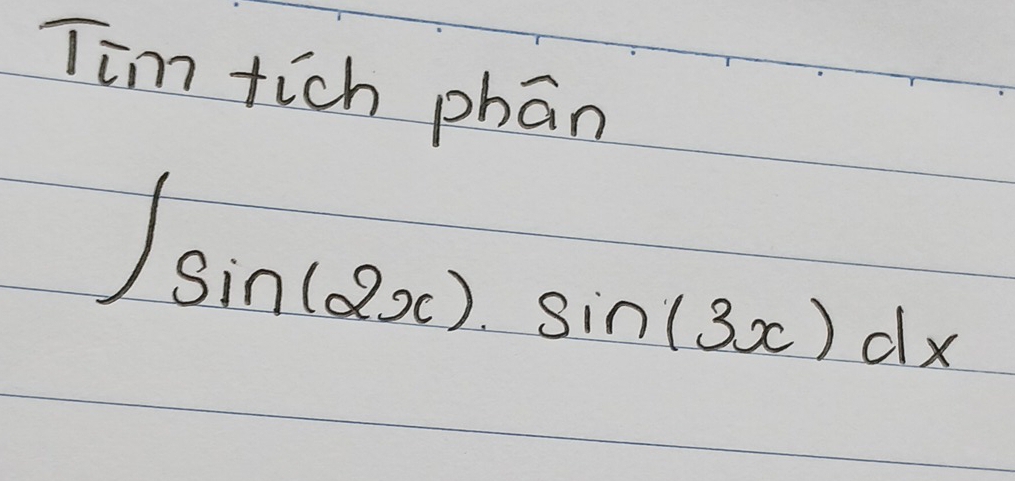 Tìm tích phân
∫ sin(2x). sin(3x) dx